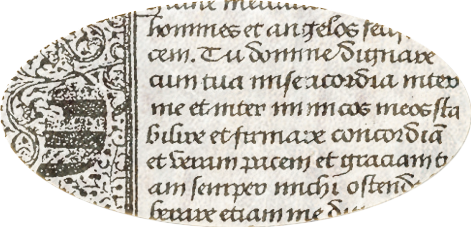 hommes et angelos feu
cem. Tu domine dignare
cum tua misericordia inter
me et inter inimicos meos sta
bilire et firmare concordiā
et veram pacem et graciam tu
am semper michi ostende
etiam me